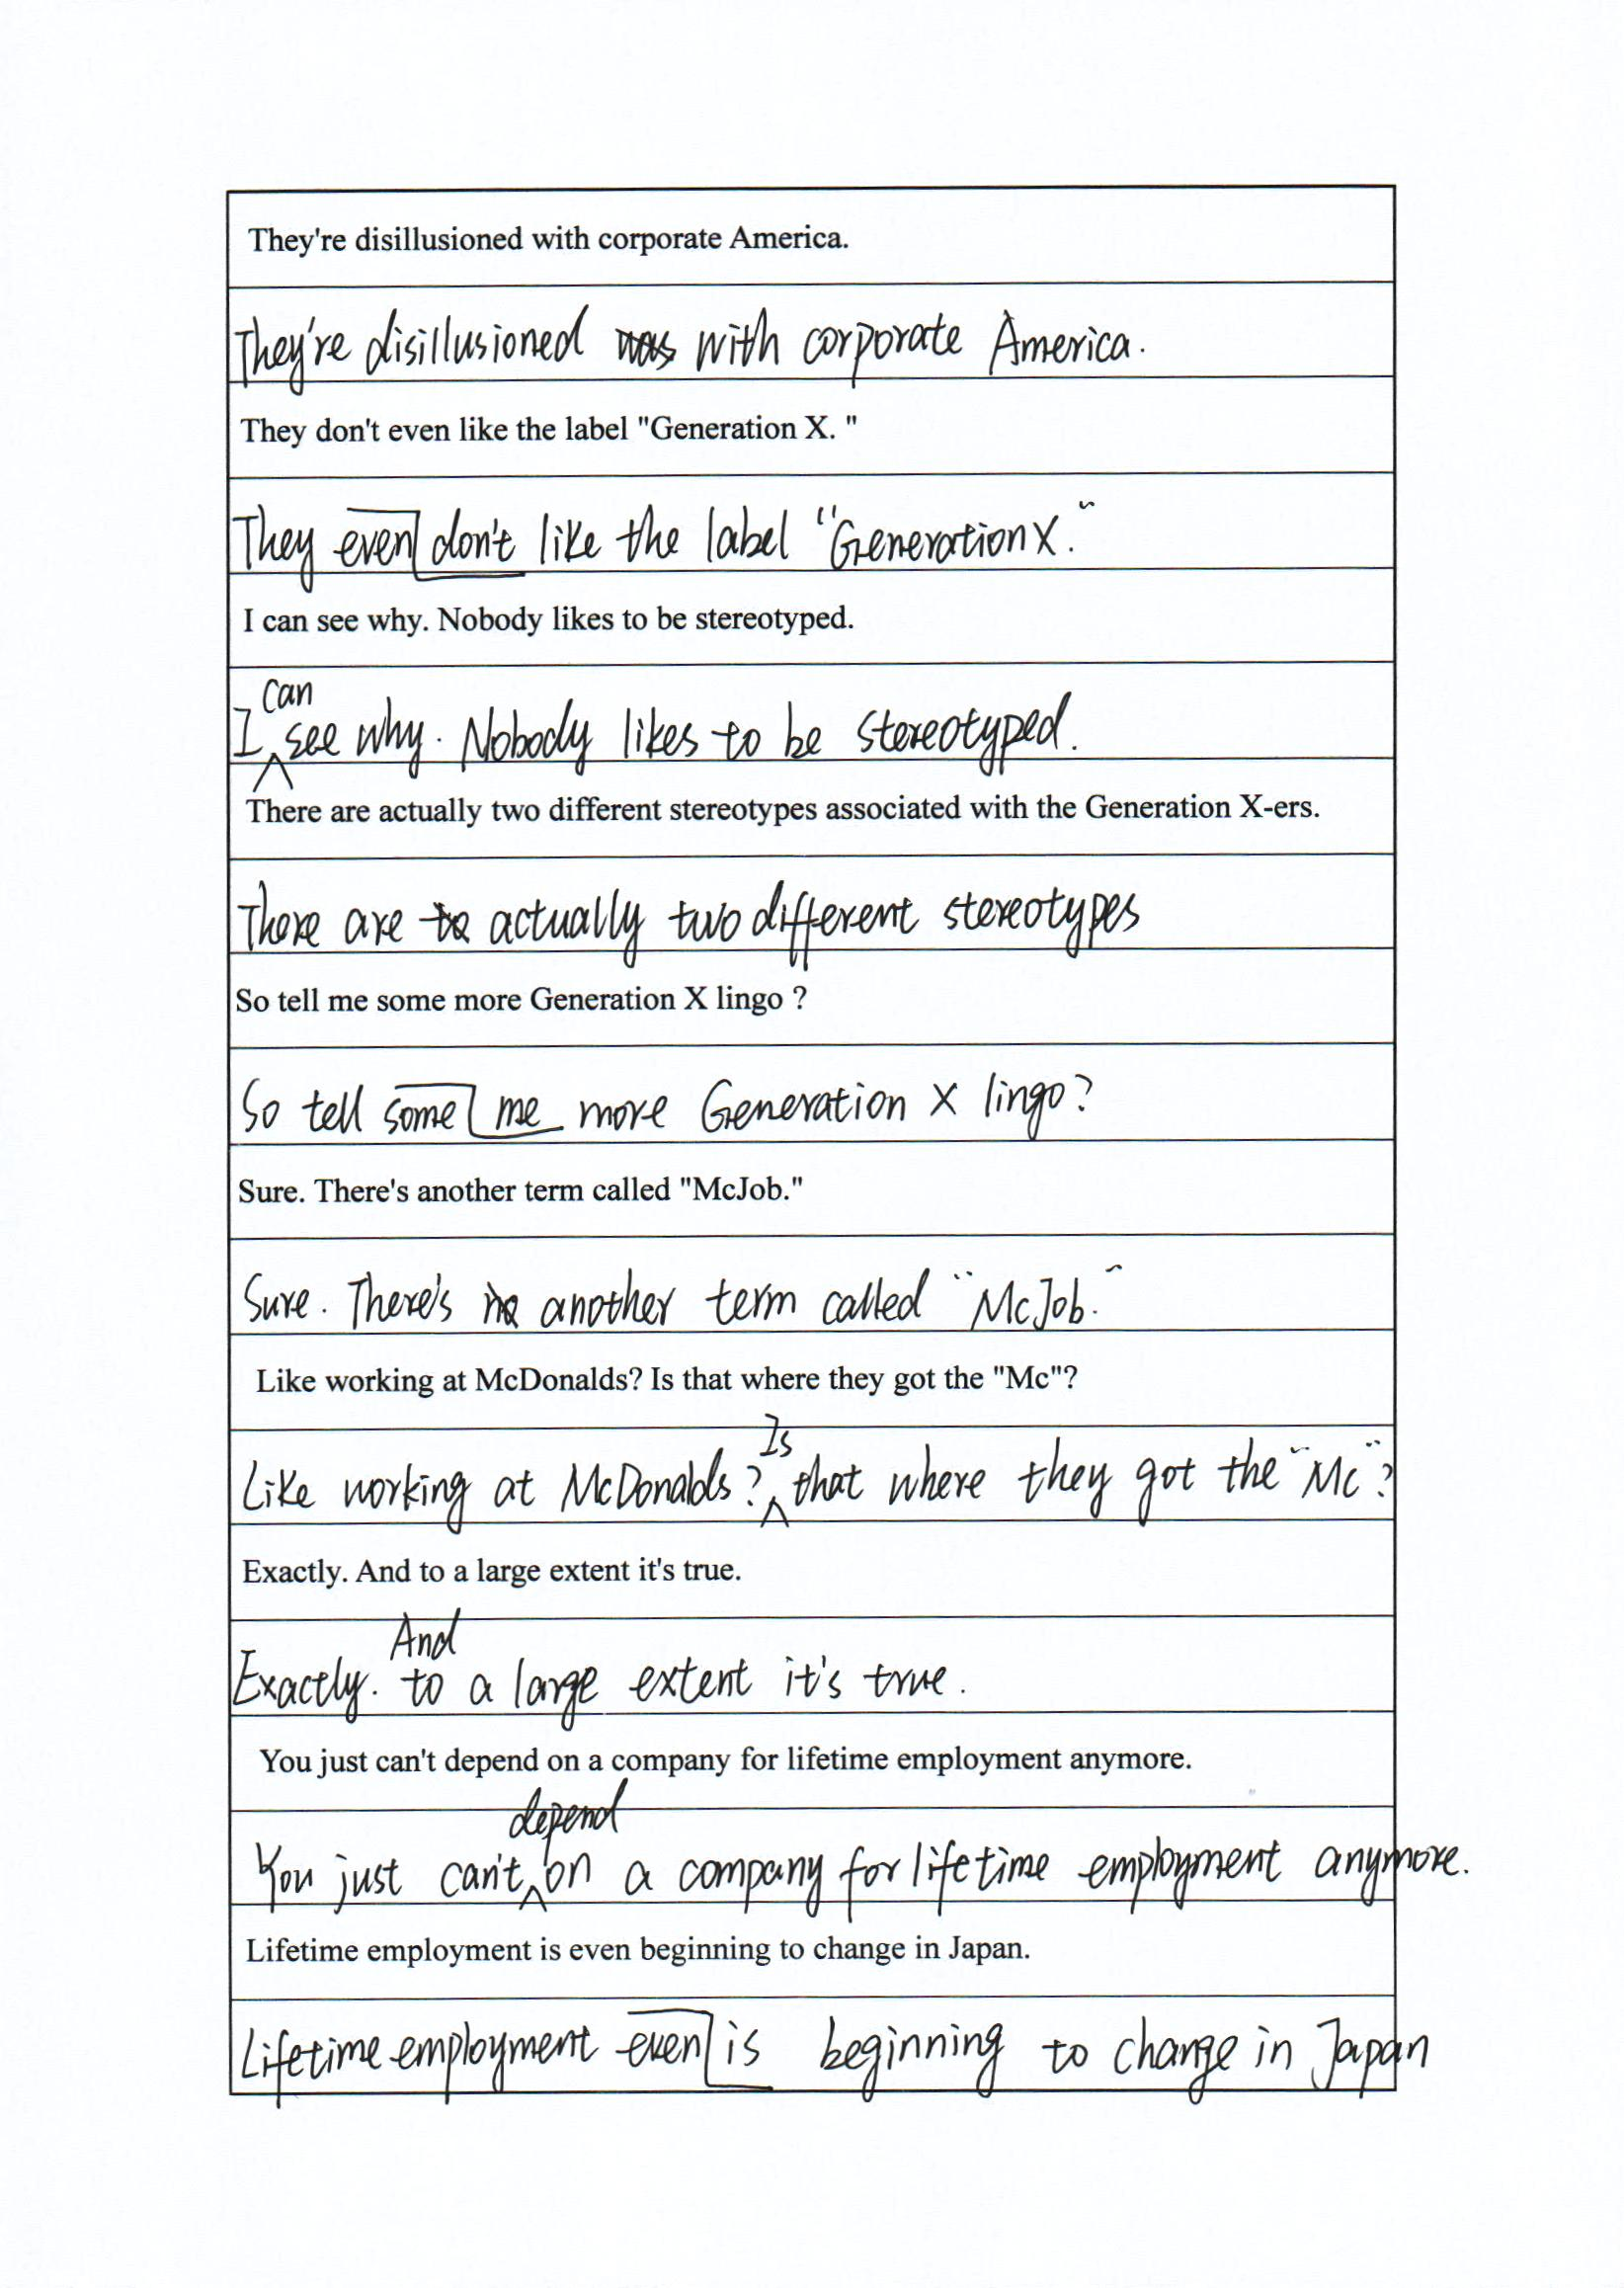 They're disillusioned with corporate America.
They're disillusioned was with corporate America.
They don't even like the label "Generation X. "
They even don't like the label "Generation X."
I can see why. Nobody likes to be stereotyped.
I can see why. Nobody likes to be stereotyped.
There are actually two different stereotypes associated with the Generation X-ers.
There are actually two different stereotypes
So tell me some more Generation X lingo ?
So tell some me more Generation X lingo?
Sure. There's another term called "McJob."
Sure. There's another term called "McJob."
Like working at McDonalds? Is that where they got the "Mc"?
Like working at McDonalds? Is that where they got the "Mc"?
Exactly. And to a large extent it's true.
Exactly. And to a large extent it's true.
You just can't depend on a company for lifetime employment anymore.
You just can't depend on a company for lifetime employment anymore.
Lifetime employment is even beginning to change in Japan.
Lifetime employment even is beginning to change in Japan